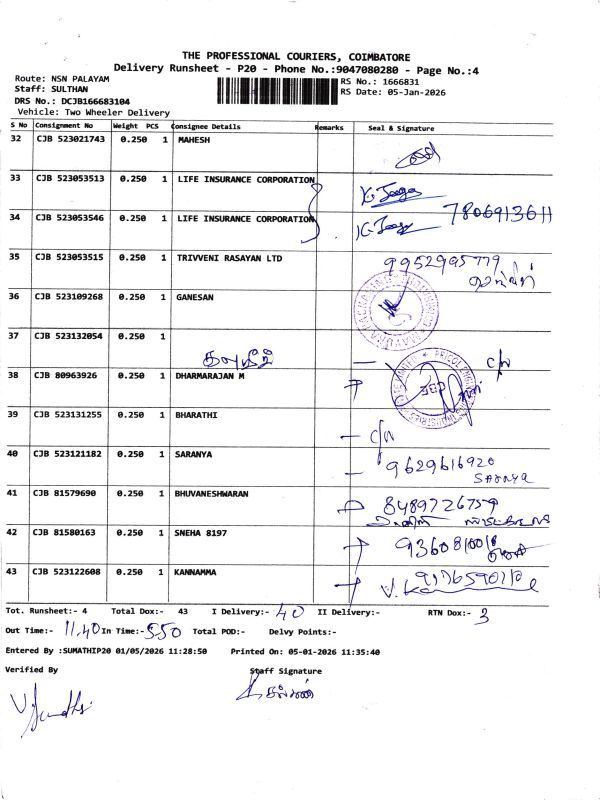 THE PROFESSIONAL COURIERS, COIMBATORE
Delivery Runsheet - P20 - Phone No.:9047080280 - Page No.:4
Route: NSN PALAYAM
Staff: SULTHAN
DRS No.: DCJB166683104
Vehicle: Two Wheeler Delivery
RS No.: 1666831
RS Date: 05-Jan-2026
S No Consignment No Weight PCS Consignee Details Remarks Seal & Signature
32 CJB 523021743 0.250 1 MAHESH
33 CJB 523053513 0.250 1 LIFE INSURANCE CORPORATION
34 CJB 523053546 0.250 1 LIFE INSURANCE CORPORATION 7806913611
35 CJB 523053515 0.250 1 TRIVVENI RASAYAN LTD 9952995779
36 CJB 523109268 0.250 1 GANESAN
37 CJB 523132054 0.250 1
38 CJB 80963926 0.250 1 DHARMARAJAN M
39 CJB 523131255 0.250 1 BHARATHI
40 CJB 523121182 0.250 1 SARANYA 9629616920
41 CJB 81579690 0.250 1 BHUVANESHWARAN 8489726759
42 CJB 81580163 0.250 1 SNEHA 8197
43 CJB 523122608 0.250 1 KANNAMMA
Tot. Runsheet:- 4 Total Dox:- 43 I Delivery:- 40 II Delivery:- RTN Dox:- 3
Out Time:- 11.40 In Time:- 5.50 Total POD:- Delvy Points:-
Entered By :SUMATHIP20 01/05/2026 11:28:50 Printed On: 05-01-2026 11:35:40
Verified By Staff Signature